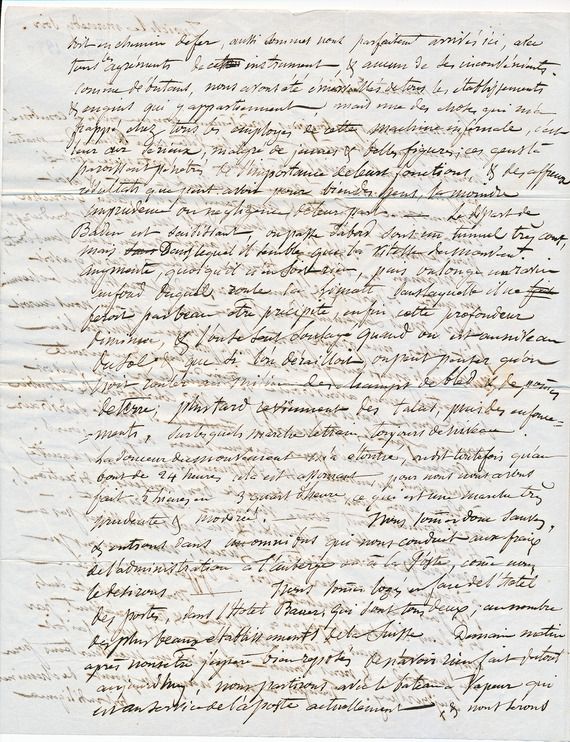 soit en chemin de fer, aussi sommes nous parfaitement arrivés ici, avec
tous les agréments de cette instrument, & aucun de ses inconvénients.
comme débutant, nous avons été de tous les établissements
& engins qui y appartiennent, mais une des choses qui m'a
frappé chez tous les employés de cette machine infernale, c'est
leur air sérieux, malgré de jeunes & belles figures, ces gens là
paroissent pénétrés de l'importance de leurs fonctions, & des affreux
résultats que peut avoir pour bien des gens, la moindre
imprudence ou négligence de leur part. — Le départ de
Baden est saisissant, on passe d'abord sous un tunnel très court,
mais dans lequel il semble que la vitesse du mouvement
augmente, quoiqu'il n'en soit rien, puis on longe un ravin
au fond duquel, roule la Limmatt dans laquelle il ne
seroit pas beau être précipité, enfin cette profondeur
diminue, & l'on se sent soulagé quand on est au niveau
du sol, & que si l'on dérailloit, on peut penser qu'on
iroit rouler au milieu des champs de bled & de pommes
de terre, plus tard reviennent des talus, puis des enfonce=
=ments, sur lesquels marche le train toujours de niveau.
La douceur du mouvement m'a , on dit toutefois qu'au
bout de 24 heures cela est assommant, pour nous nous avons
fait 5 lieues en 3 quart d'heure, ce que est une marche très
prudente & modérée. — Nous sommes donc sauvés,
& entrons dans un omnibus qui nous conduit aux frais
de l'administration à l'auberge ou à la Poste, comme nous
le desirons. — Nous sommes logés en face de l'hotel
des postes, dans l'Hotel Bauer, qui sont tous deux, au nombre
des plus beaux etablissements de la Suisse. Demain matin
après nous être j'espère bien reposés de n'avoir rien fait du tout
aujourd'hui, nous partirons avec le bateau à Vapeur qui
est au service de la poste actuellement — & nous serons